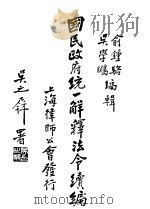 俞鍾駱
吳學鵬
編輯
國民政府統一解釋法令續編
上海律師公會發行
吳之屏署